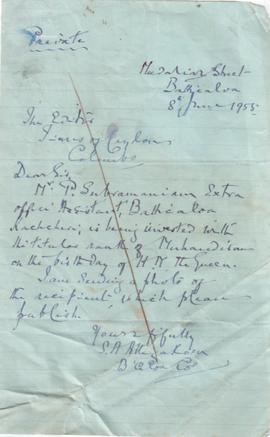 Private
Street
Batticaloa
8th June 1955
The Editor
Times of Ceylon
Colombo
Dear Sir,
Mr. P. Subramaniam Extra
office Assistant, Batticaloa
Kachcheri, is being invested with
the titular rank of Muhandiram
on the birthday of H. M the Queen.
I am sending a photo of
the recipient, which please
publish.
Yours ffully
S. A